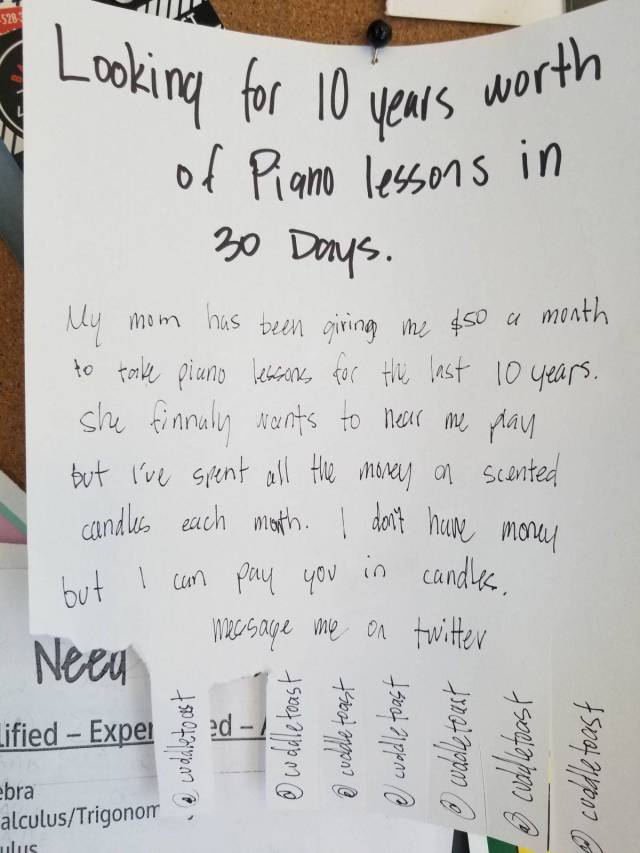 Looking for 10 years worth
of Piano lessons in
30 Days.
My mom has been giving me $50 a month
to take piano lessons for the last 10 years.
She finnaly wants to hear me play
but I've spent all the money on scented
candles each month. I don't have money
but I can pay you in candles.
message me on twitter
@cuddletoast
@cuddletoast
@cuddletoast
@cuddletoast
@cuddletoast
@cuddletoast
@cuddletoast
Need
lified – Exper
ed –
ebra
alculus/Trigonom
ulus
528-